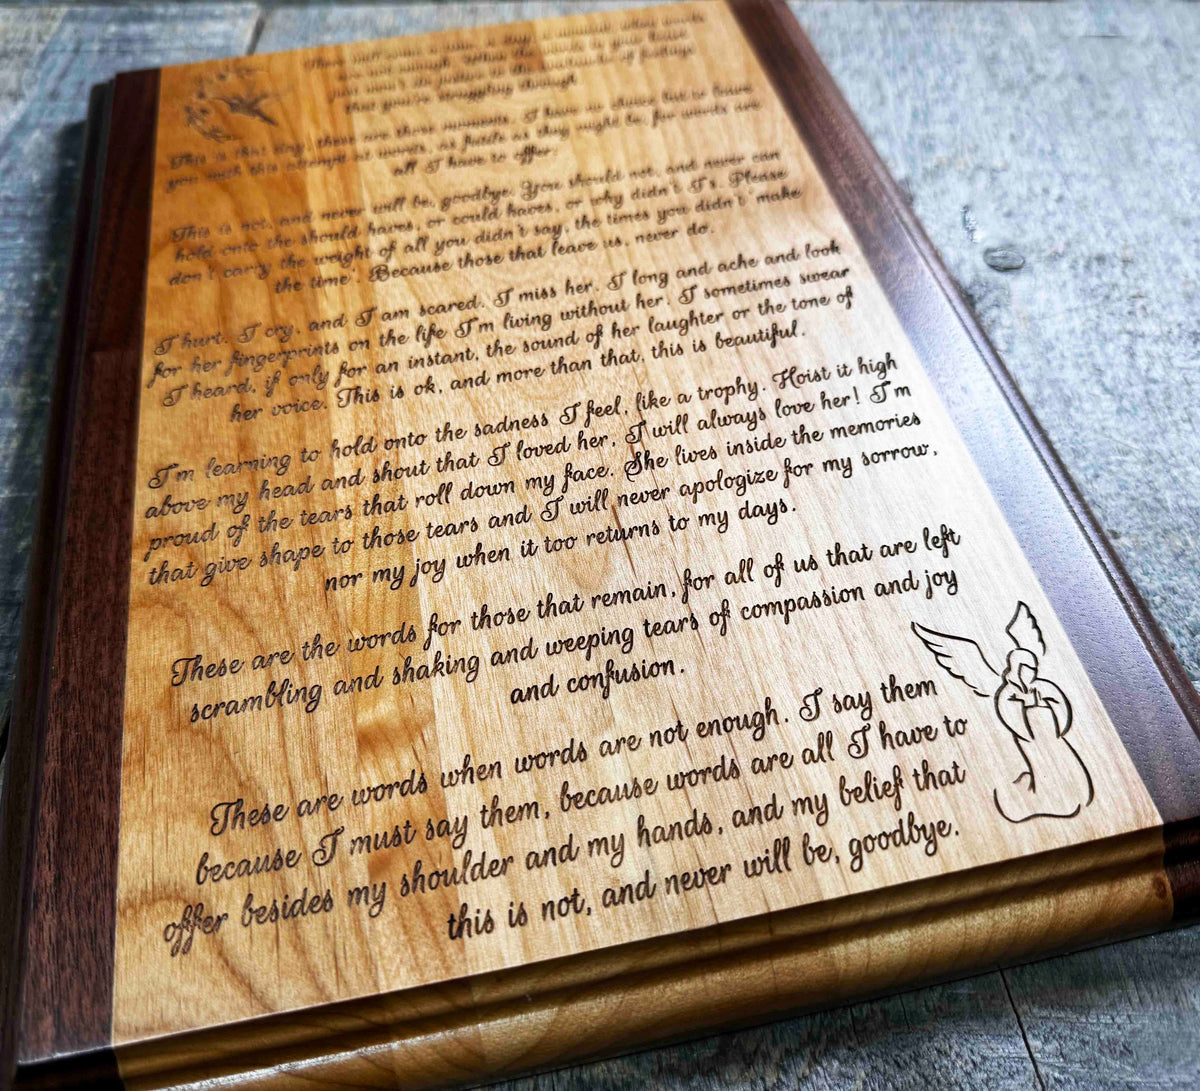 are not enough. When the
that you're struggling through.
This is that day, these are those moments. I have no choice but to leave
you with this attempt at words, as futile as they might be, for words are
all I have to offer.
This is not, and never will be, goodbye. You should not, and never can
hold onto the should haves, or could haves, or why didn't I's. Please
don't carry the weight of all you didn't say, the times you didn't 'make
the time'. Because those that leave us, never do.
I hurt. I cry, and I am scared. I miss her. I long and ache and look
for her fingerprints on the life I'm living without her. I sometimes swear
I heard, if only for an instant, the sound of her laughter or the tone of
her voice. This is ok, and more than that, this is beautiful.
I'm learning to hold onto the sadness I feel, like a trophy. Hoist it high
above my head and shout that I loved her, I will always love her! I'm
proud of the tears that roll down my face. She lives inside the memories
that give shape to those tears and I will never apologize for my sorrow,
nor my joy when it too returns to my days.
These are the words for those that remain, for all of us that are left
scrambling and shaking and weeping tears of compassion and joy
and confusion.
These are words when words are not enough. I say them
because I must say them, because words are all I have to
offer besides my shoulder and my hands, and my belief that
this is not, and never will be, goodbye.